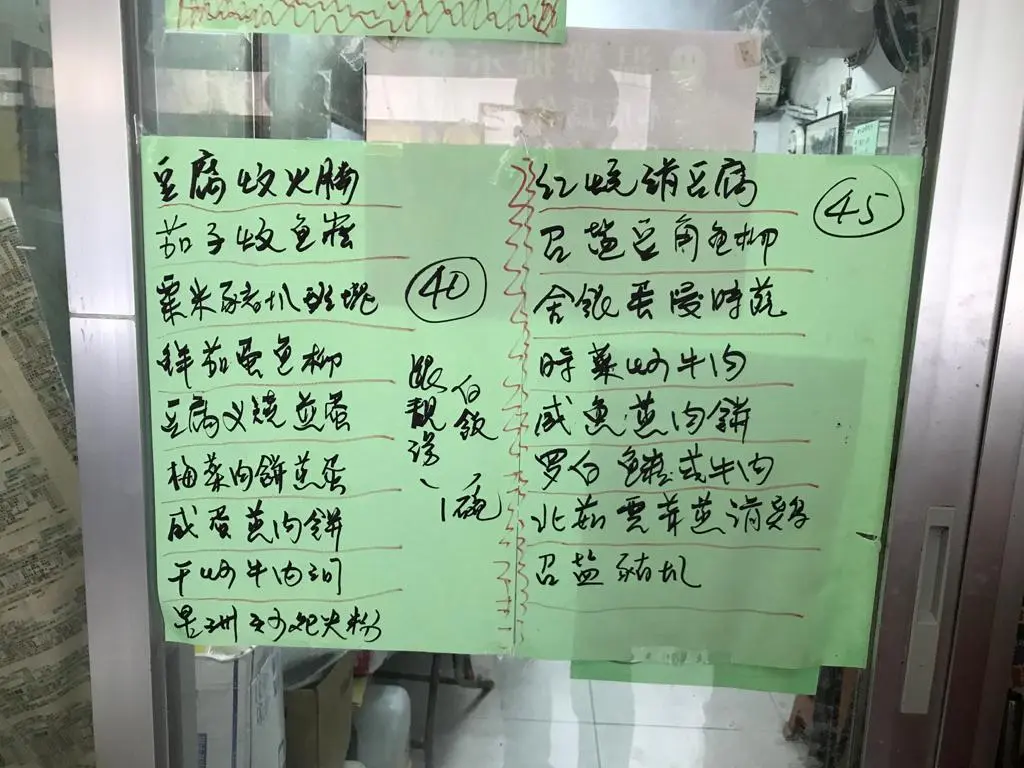 豆腐炆火腩
茄子炆鱼崧
粟米豬扒班塊
鲜茄蛋鱼柳
豆腐叉燒煎蛋
梅菜肉餅煎蛋
咸蛋蒸肉餅
干炒牛肉河
星洲炒米粉
40
跟白飯
靚湯
1碗
红烧滑豆腐
召盐豆角鱼柳
金銀蛋浸時蔬
時菜炒牛肉
咸魚蒸肉餅
罗白鱼崧或牛肉
北菇雲茸蒸滑雞
召盐豬扒
45